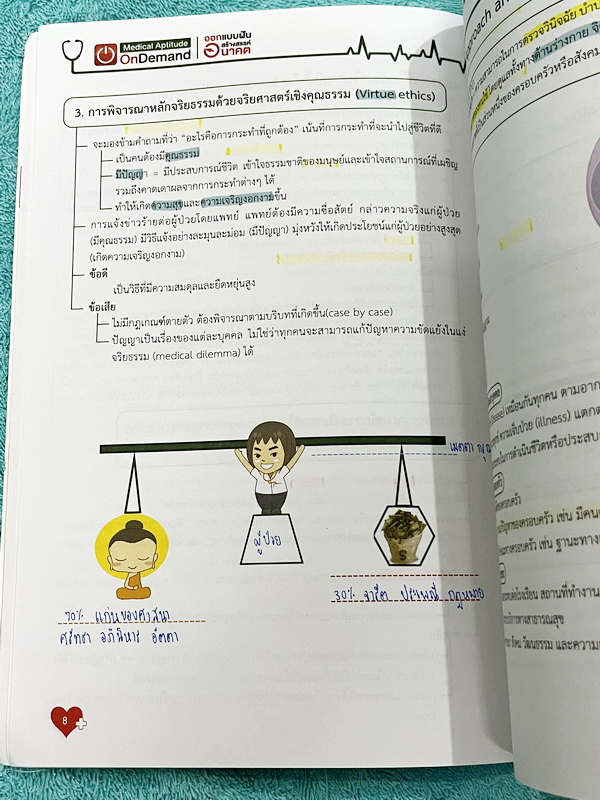 Medical Aptitude
OnDemand
ออกแบบฝัน
สร้างสรรค์
อนาคต
3. การพิจารณาหลักจริยธรรมด้วยจริยศาสตร์เชิงคุณธรรม (Virtue ethics)
จะมองข้ามคำถามที่ว่า "อะไรคือการกระทำที่ถูกต้อง" เน้นที่การกระทำที่จะนำไปสู่ชีวิตที่ดี
เป็นคนต้องมีคุณธรรม
มีปัญญา = มีประสบการณ์ชีวิต เข้าใจธรรมชาติของมนุษย์และเข้าใจสถานการณ์ที่เผชิญ
รวมถึงคาดเดาผลจากการกระทำต่างๆ ได้
ทำให้เกิดความสุขและความเจริญงอกงามขึ้น
การแจ้งข่าวร้ายต่อผู้ป่วยโดยแพทย์ แพทย์ต้องมีความซื่อสัตย์ กล่าวความจริงแก่ผู้ป่วย
(มีคุณธรรม) มีวิธีแจ้งอย่างละมุนละม่อม (มีปัญญา) มุ่งหวังให้เกิดประโยชน์แก่ผู้ป่วยอย่างสูงสุด
(เกิดความเจริญงอกงาม)
ข้อดี
เป็นวิธีที่มีความสมดุลและยืดหยุ่นสูง
ข้อเสีย
ไม่มีกฎเกณฑ์ตายตัว ต้องพิจารณาตามบริบทที่เกิดขึ้น(case by case)
ปัญญาเป็นเรื่องของแต่ละบุคคล ไม่ใช่ว่าทุกคนจะสามารถแก้ปัญหาความขัดแย้งในแง่
จริยธรรม (medical dilemma) ได้
เมตตา
ผู้ป่วย
$
30% จารีต ประเพณี กฎหมาย
70% แก่นของศาสนา
ศรัทธา อภินิหาร อัตตา
8
proach an
สามารถในการตรวจวินิจฉัย บำบ
โดยดูแลทั้งทางด้านร่างกาย จิ
เป็นส่วนหนึ่งของครอบครัวหรือสังคม
เหมือนกันทุกคน ตามอาก
ความเจ็บป่วย (illness) แตกต
ในการดำเนินชีวิตหรือประสบ
ครอบครัว
ปัญหาของครอบครัว เช่น มีคน
ของครอบครัว เช่น ฐานะทาง
โรงเรียน สถานที่ทำงาน
บริการทางสาธารณสุข
สังคม วัฒนธรรม และความ